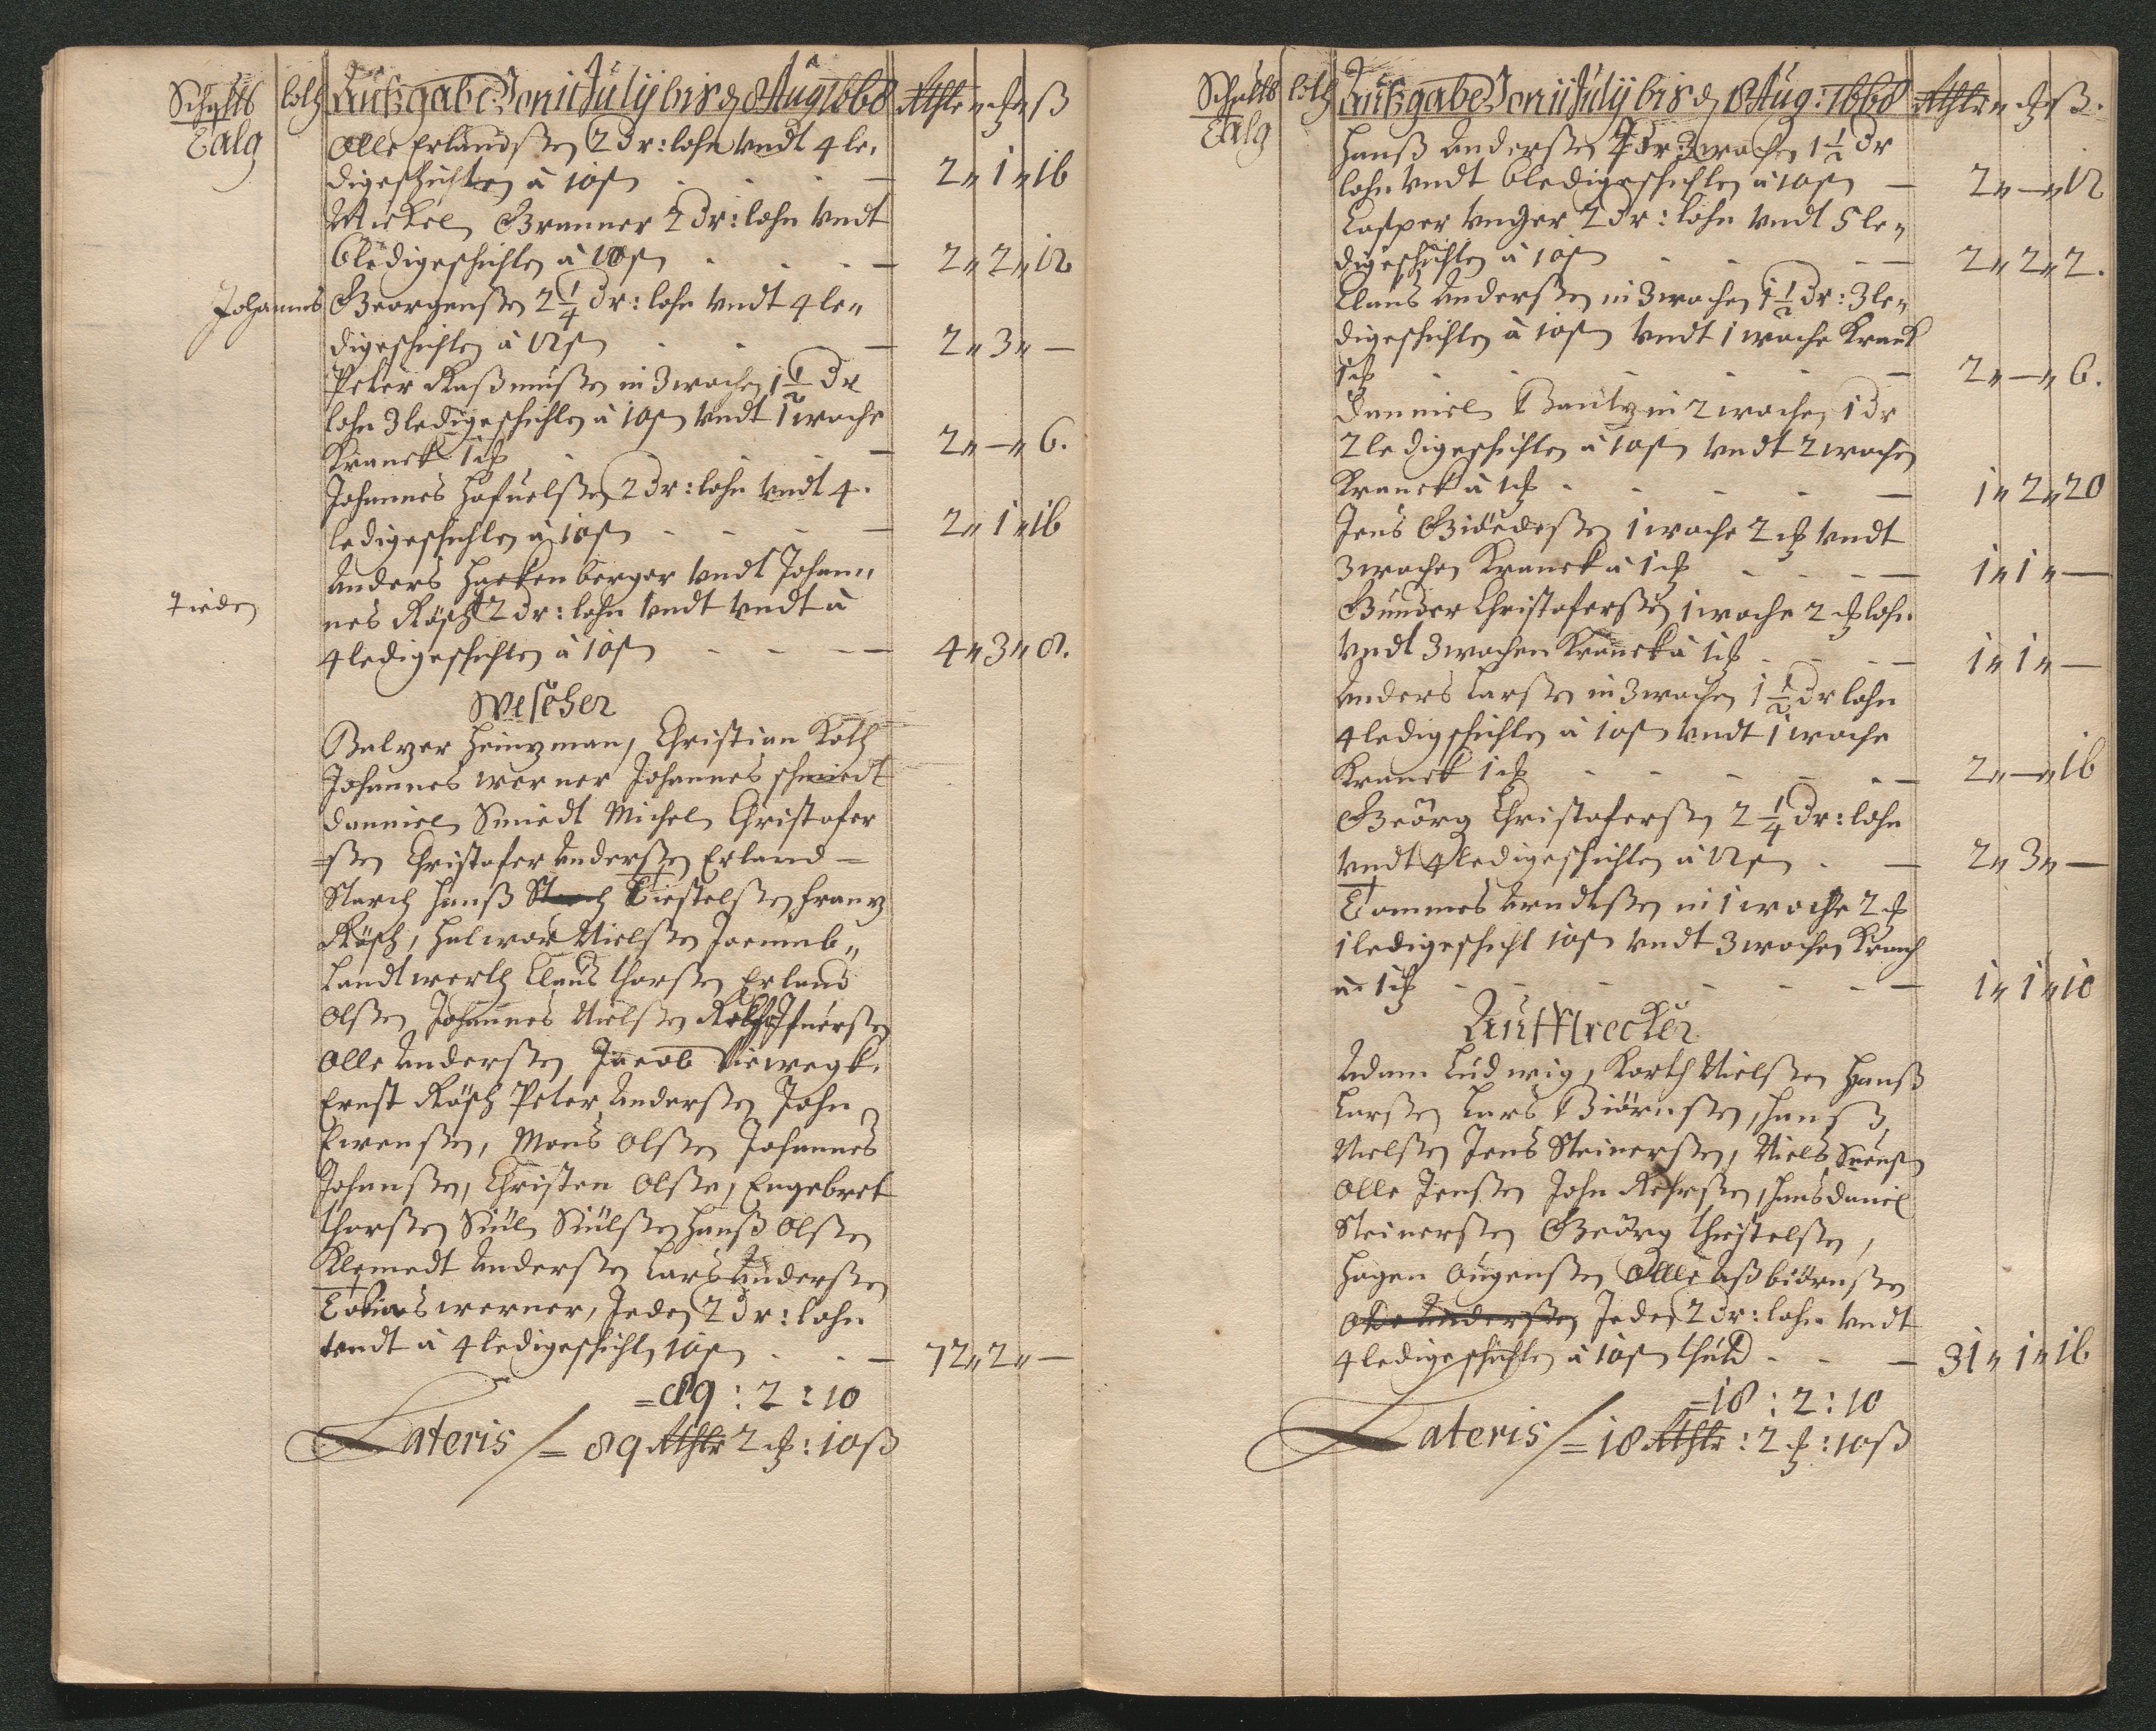 Schults
Talg
loth
Außgabe Von 11 July bis d 8 Aug 1668
Rthlr
ß
Olle Erlandßen 2 dr: lohn vndt 4 le,
digeschichten à 10ß — 2 „ 1 „ 16
Mickel Branner 2 dr: lohn vndt
6 ledigeschichten à 10ß — 2 „ 2 „ 12
Johannes Georgenßen 2 1/4 dr: lohn vndt 4 le„
digeschichten à 12ß — 2 „ 3 „ —
Peter Raßmußen in 3 wochen 1 1/2 dr
lohn 3 ledigeschichten à 10ß vndt 1 woche
Kranck 1 — 2 „ — „ 6.
Johannes 2 dr: lohn vndt 4.
ledigeschichten à 10ß — 2 „ 1 „ 16
Anders Hackenberger vndt Johan„
nes Rösch 2 dr: lohn vndt vndt à
4 ledigeschichten à 10ß — 4 „ 3 „ 8.
Wescher
Balzer Heinzman, Christian Koth
Johannes werner Johannes schmiedt
Danniel Smiedt Michel Christofer
=ßen Christofer Anderßen Erland=
Starch Hanß Starch Kiestelßen Franz
Rösch, Halwor Nielßen
Landtwerth Clauß Thorßen Erland
Olßen Johannes Nielßen
Olle Anderßen Jacob Viewegk.
Ernst Rösch Peter Anderßen John
Ewenßen, Mons Olßen Johannes
Johanßen, Christen Olßen, Engebret
Thorßen Siul Siulßen Hanß Olßen
Klemedt Anderßen Lars Anderßen
Tobias werner, Jeden 2 dr: lohn
vndt à 4 ledigeschicht 10ß — 72 „ 2 „ —
= 89 : 2 : 10
Lateris /= 89 Rthlr 2 : 10ß
Schults
Talg
loth
Außgabe Von 11 July bis d 8 Aug: 1668
Rthlr
ß.
Hanß Anderßen 3 wochen 1 1/2 dr
lohn vndt 6 ledigeschichten à 10ß — 2 „ — „ 12
Casper vnger 2 dr: lohn vndt 5 le„
digeschichten à 10ß — 2 „ 2 „ 2.
Clauß Anderßen in 3 wochen 1 1/2 dr: 3 le„
digeschichten à 10ß vndt 1 woche Kranck
1 — 2 „ — „ 6.
Danniel Bautz in 2 wochen 1 dr
2 ledigeschichten à 10ß vndt 2 wochen
Kranck à 1 — 1 „ 2 „ 20
Jens 1 woche 2 vndt
3 wochen Kranck à 1 — 1 „ 1 „ —
Gunder Christoferßen 1 woche 2 lohn
vndt 3 wochen Kranck à 1 — 1 „ 1 „ —
Anders Larßen in 3 wochen 1 1/2 dr lohn
4 ledigschichten à 10ß vndt 1 woche
Kranck 1 — 2 „ — „ 16
Geörg Christoferßen 2 1/4 dr: lohn
vndt 4 ledigeschichten à 12ß — 2 „ 3 „ —
Tommes Arndtßen in 1 woche 2
1 ledigeschicht 10ß vndt 3 wochen Kranck
à 1 — 1 „ 1 „ 10
Aufftrecker
Adam Ludwig, Korth Nielßen Hanß
Larßen Lars Biörnßen, Hanß
Nielßen Jens Steinerßen, Niels
Olle Jenßen John, Hans Daniel
Steinerßen Geörg Christelßen,
Hagen Augenßen Olle Aßbiörnßen
Ole Anderßen Jeden 2 dr: lohn vndt
4 ledigeschichten à 10ß thutd — 31 „ 1 „ 16
= 18 : 2 : 10
Lateris /= 18 Rthlr : 2 : 10ß